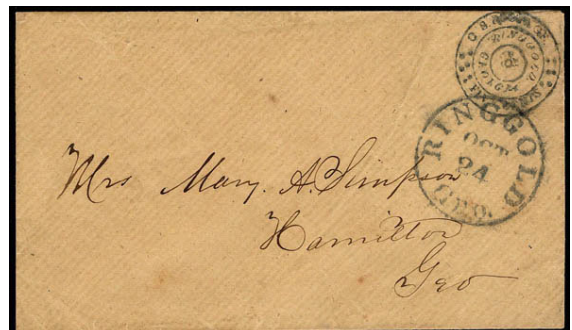 RINGGOLD
RINGGOLD
OCT
24
GEO.
Mrs Mary. A. Simpson
Hamilton
Geo